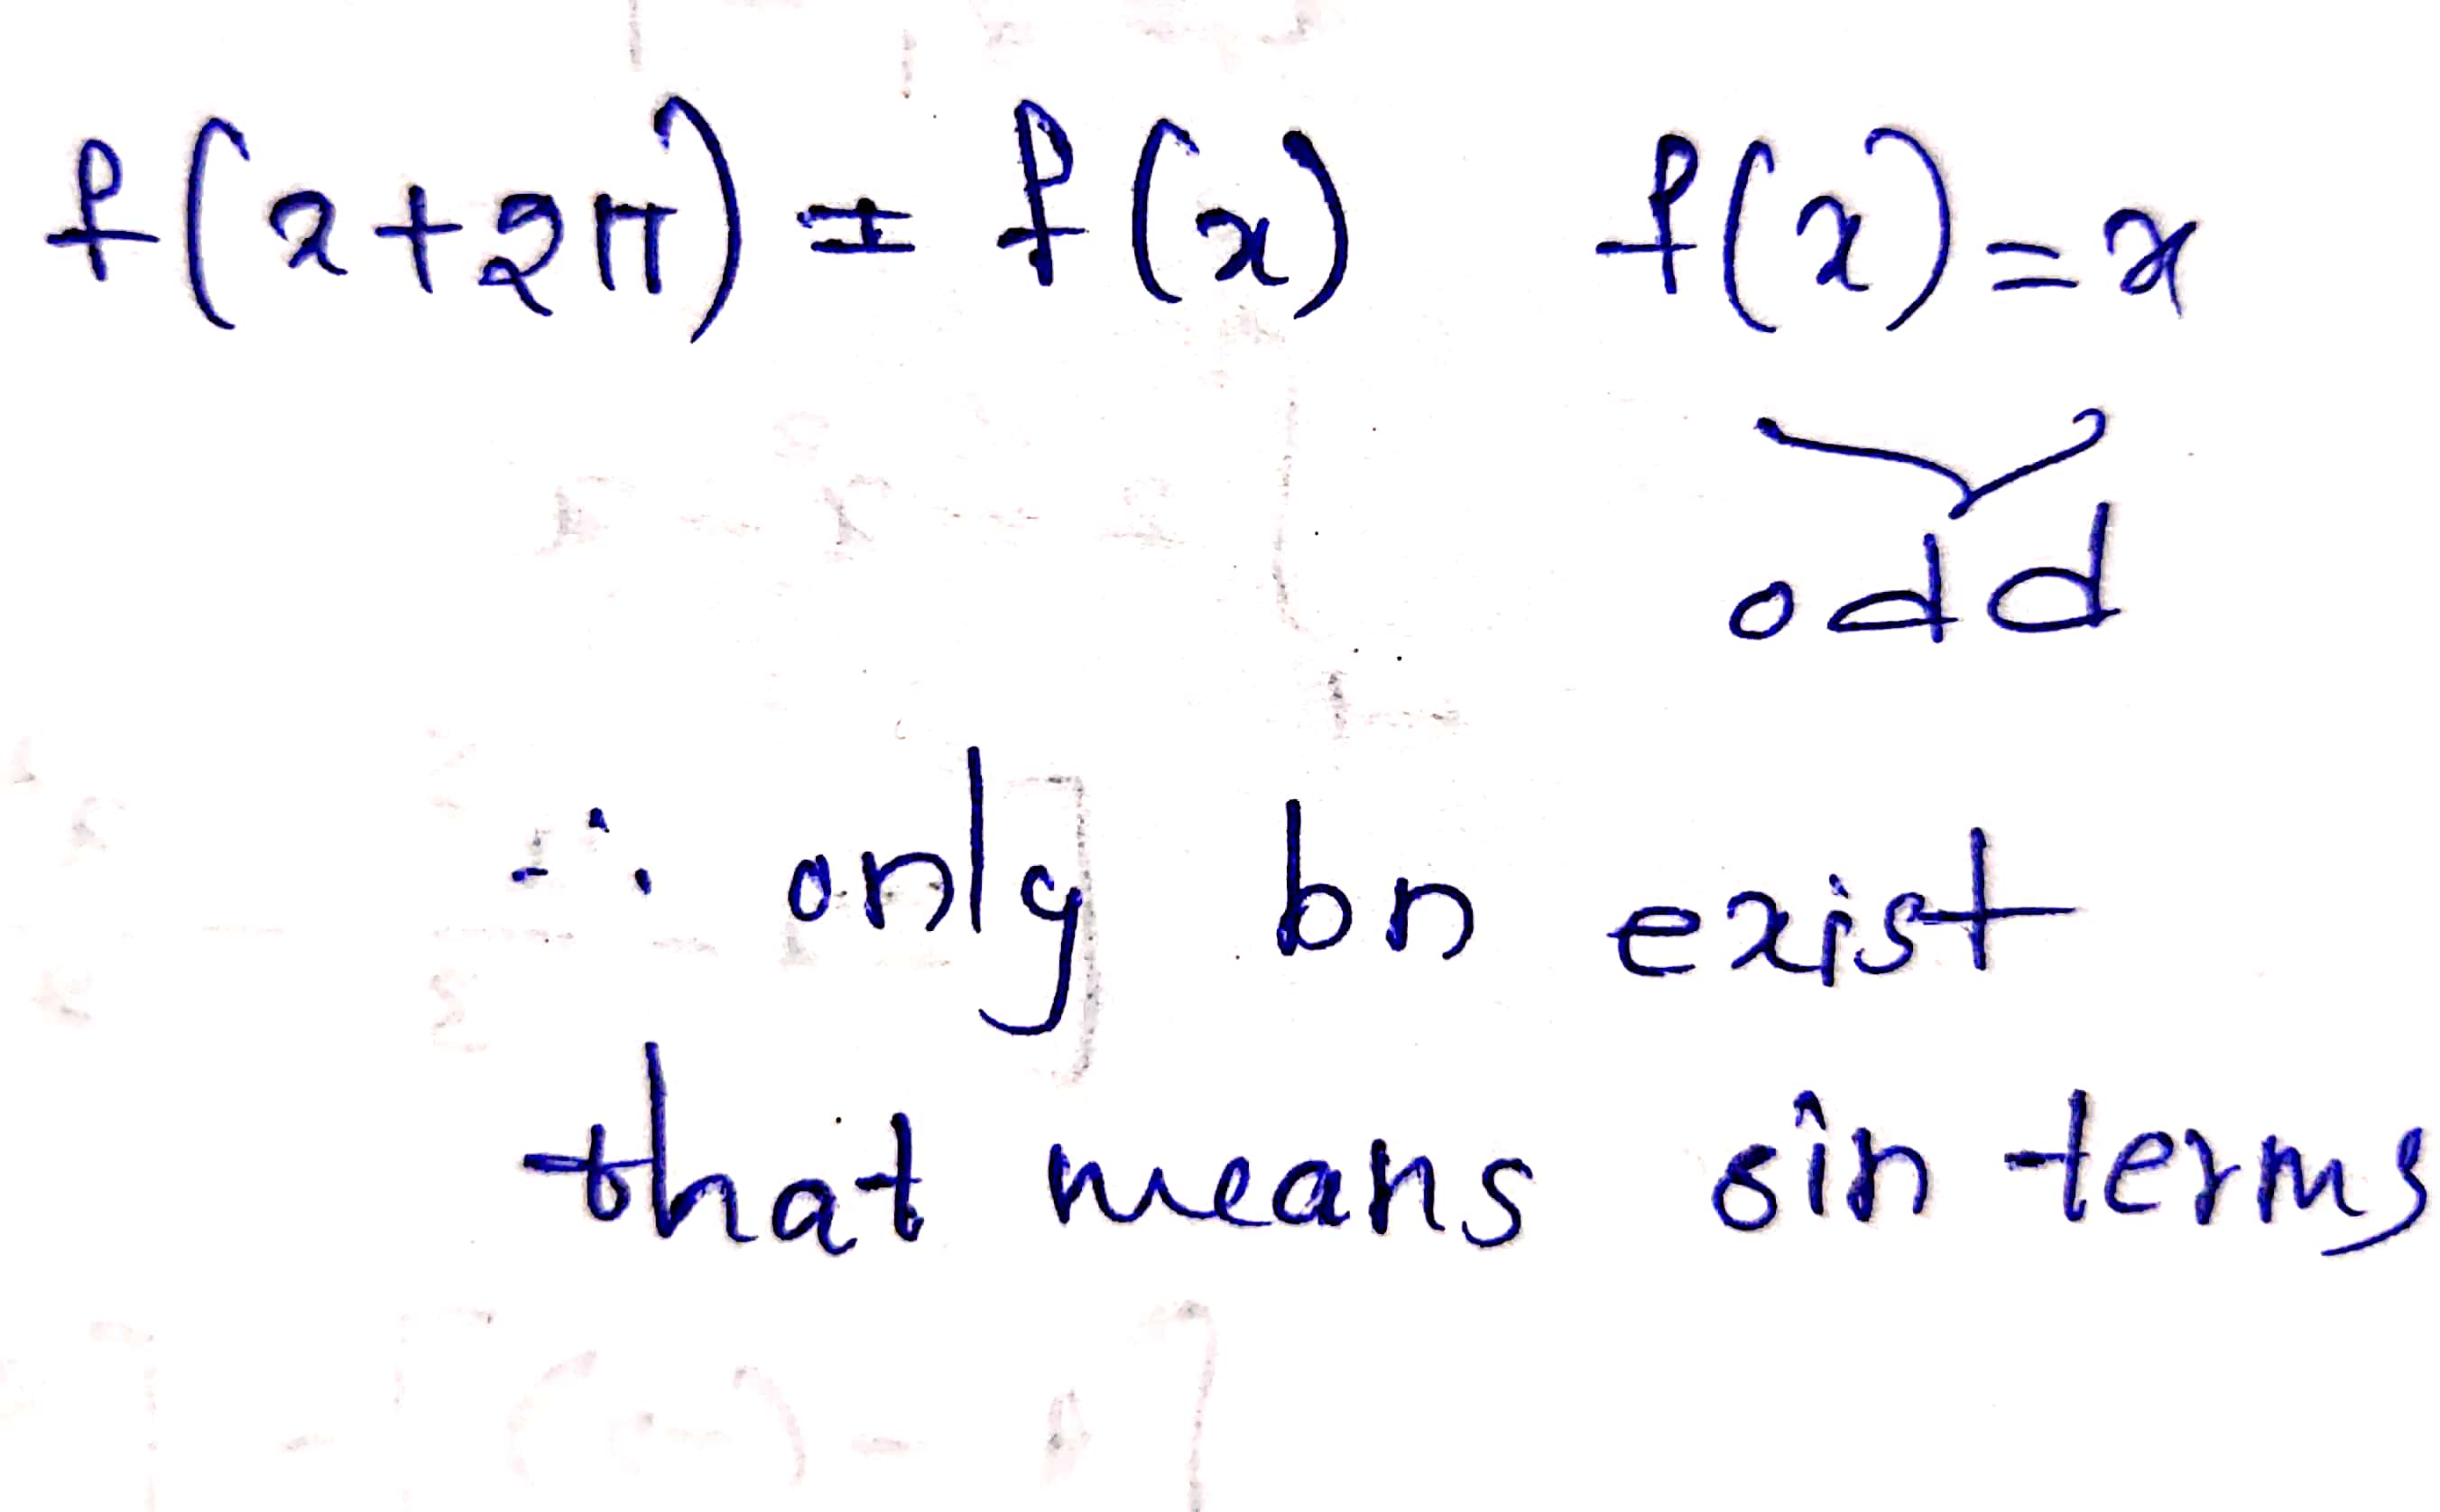 f(x+2π) = f(x) f(x)=x
odd
∴ only bn exist
that means sin terms